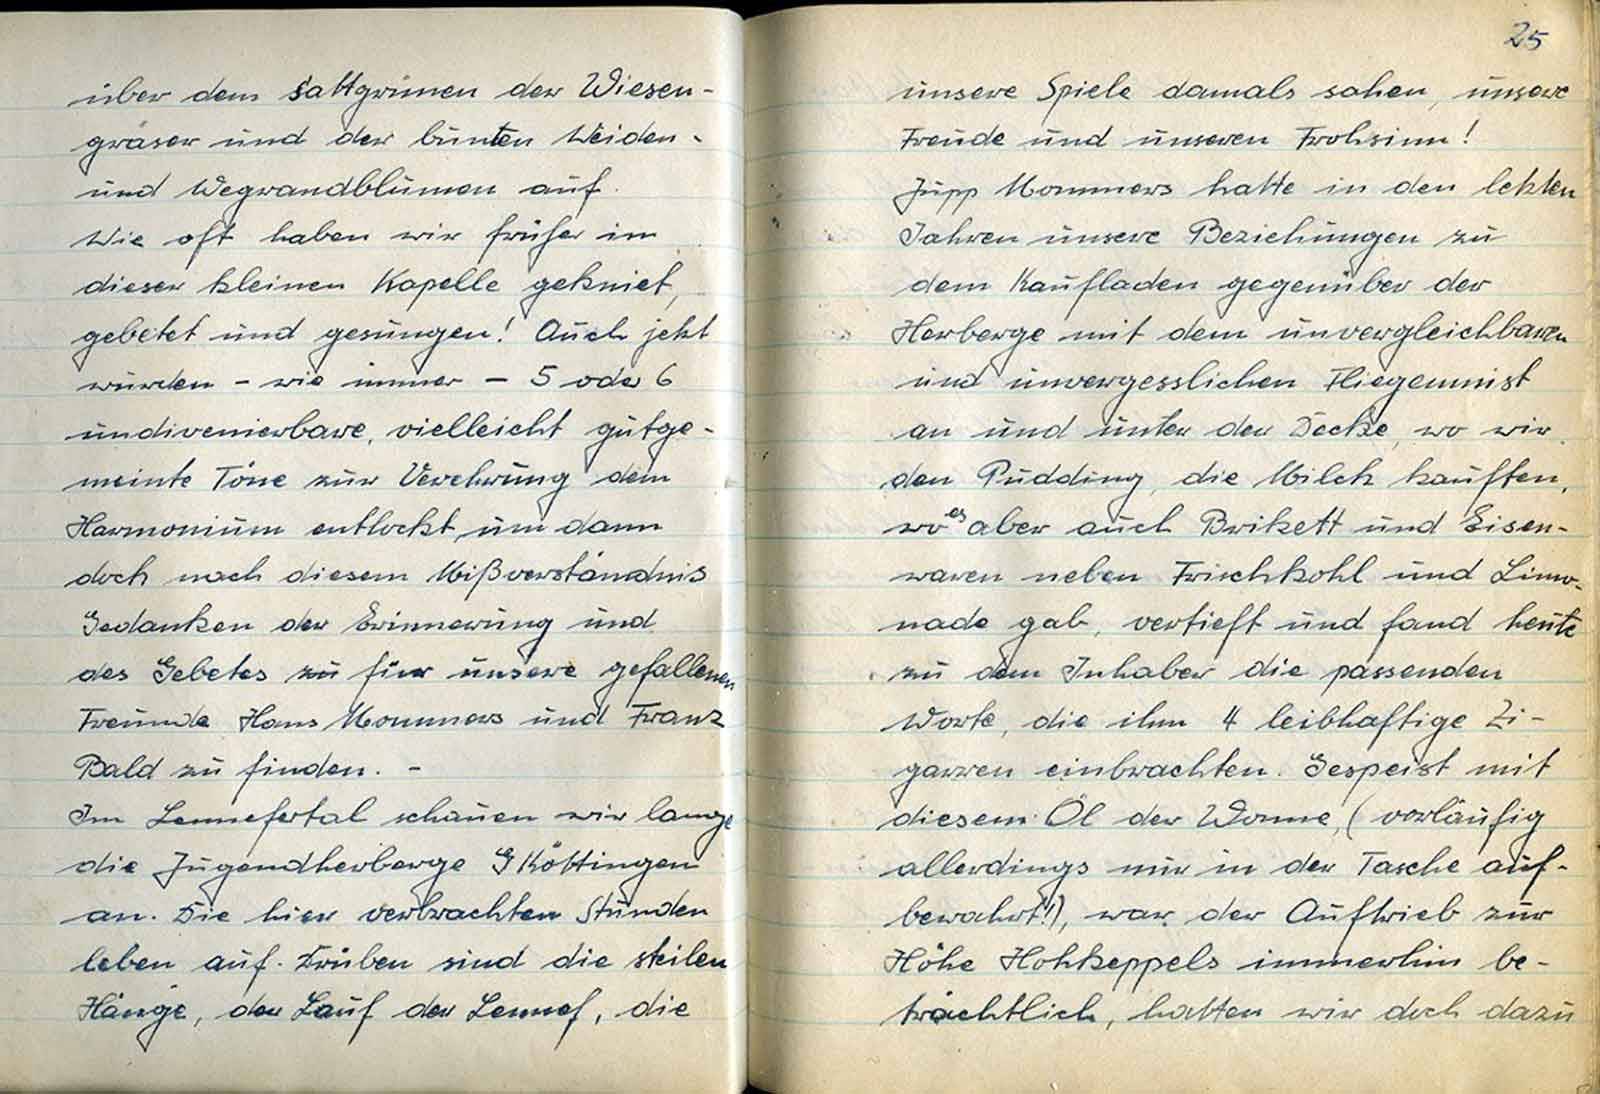 über dem sattgrünen der Wiesen-
gräser und der bunten Weiden-
und Wegrandblumen auf.
Wie oft haben wir früher in
dieser kleinen Kapelle gekniet,
gebetet und gesungen! Auch jetzt
wurden – wie immer – 5 oder 6
undivenierbare, vielleicht gutge-
meinte Töne zur Verehrung dem
Harmonium entlockt, um dann
doch nach diesem Mißverständnis
Gedanken der Erinnerung und
des Gebetes zu für unsere gefallenen
Freunde Hans Mommers und Franz
Bald zu finden. –
Im Lennefertal schauen wir lange
die Jugendherberge Köttingen
an. Die hier verbrachten Stunden
leben auf. Drüben sind die steilen
Hänge, der Lauf der Lennef, die
25
unsere Spiele damals sahen, unsere
Freude und unseren Frohsinn!
Jupp Mommers hatte in den letzten
Jahren unsere Beziehungen zu
dem Kaufladen gegenüber der
Herberge mit dem unvergleichbaren
und unvergesslichen Fliegenmist
an und unter der Decke, wo wir
den Pudding, die Milch kauften,
wo es aber auch Brikett und Eisen-
waren neben Frischkohl und Limo-
nade gab, vertieft und fand heute
zu dem Inhaber die passenden
Worte, die ihm 4 leibhaftige Zi-
garren einbrachten. Gespeist mit
diesem Öl der Wonne, (vorläufig
allerdings nur in der Tasche auf-
bewahrt!), war der Auftrieb zur
Höhe Hohkeppels immerhin be-
trächtlich, hatten wir doch dazu